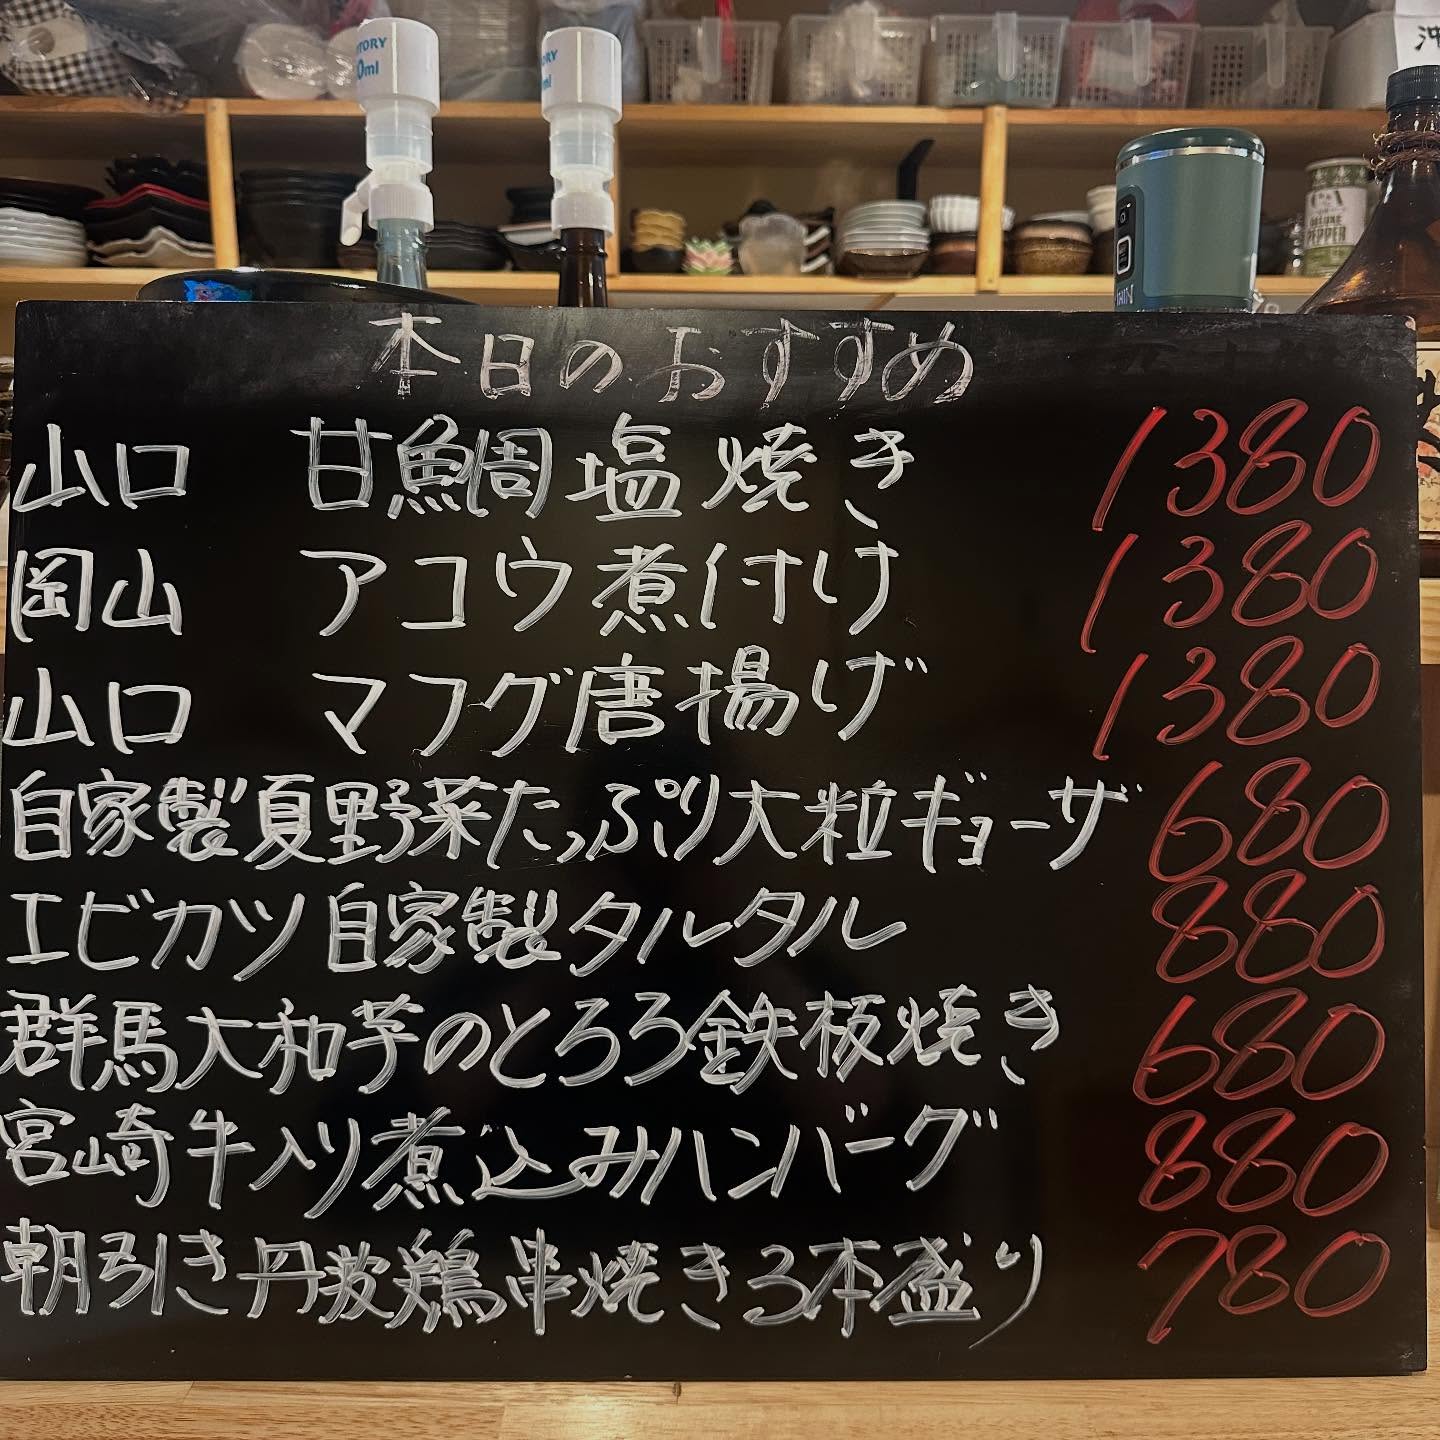 TORY
0ml
TORY
0ml
沖
PEPPER
本日のおすすめ
山口 甘鯛塩焼き 1380
岡山 アコウ煮付け 1380
山口 マフグ唐揚げ 1380
自家製夏野菜たっぷり大粒ギョーザ 680
エビカツ自家製タルタル 880
群馬大和芋のとろろ鉄板焼き 680
宮崎牛入り煮込みハンバーグ 880
朝引き丹波鶏串焼き3本盛り 780